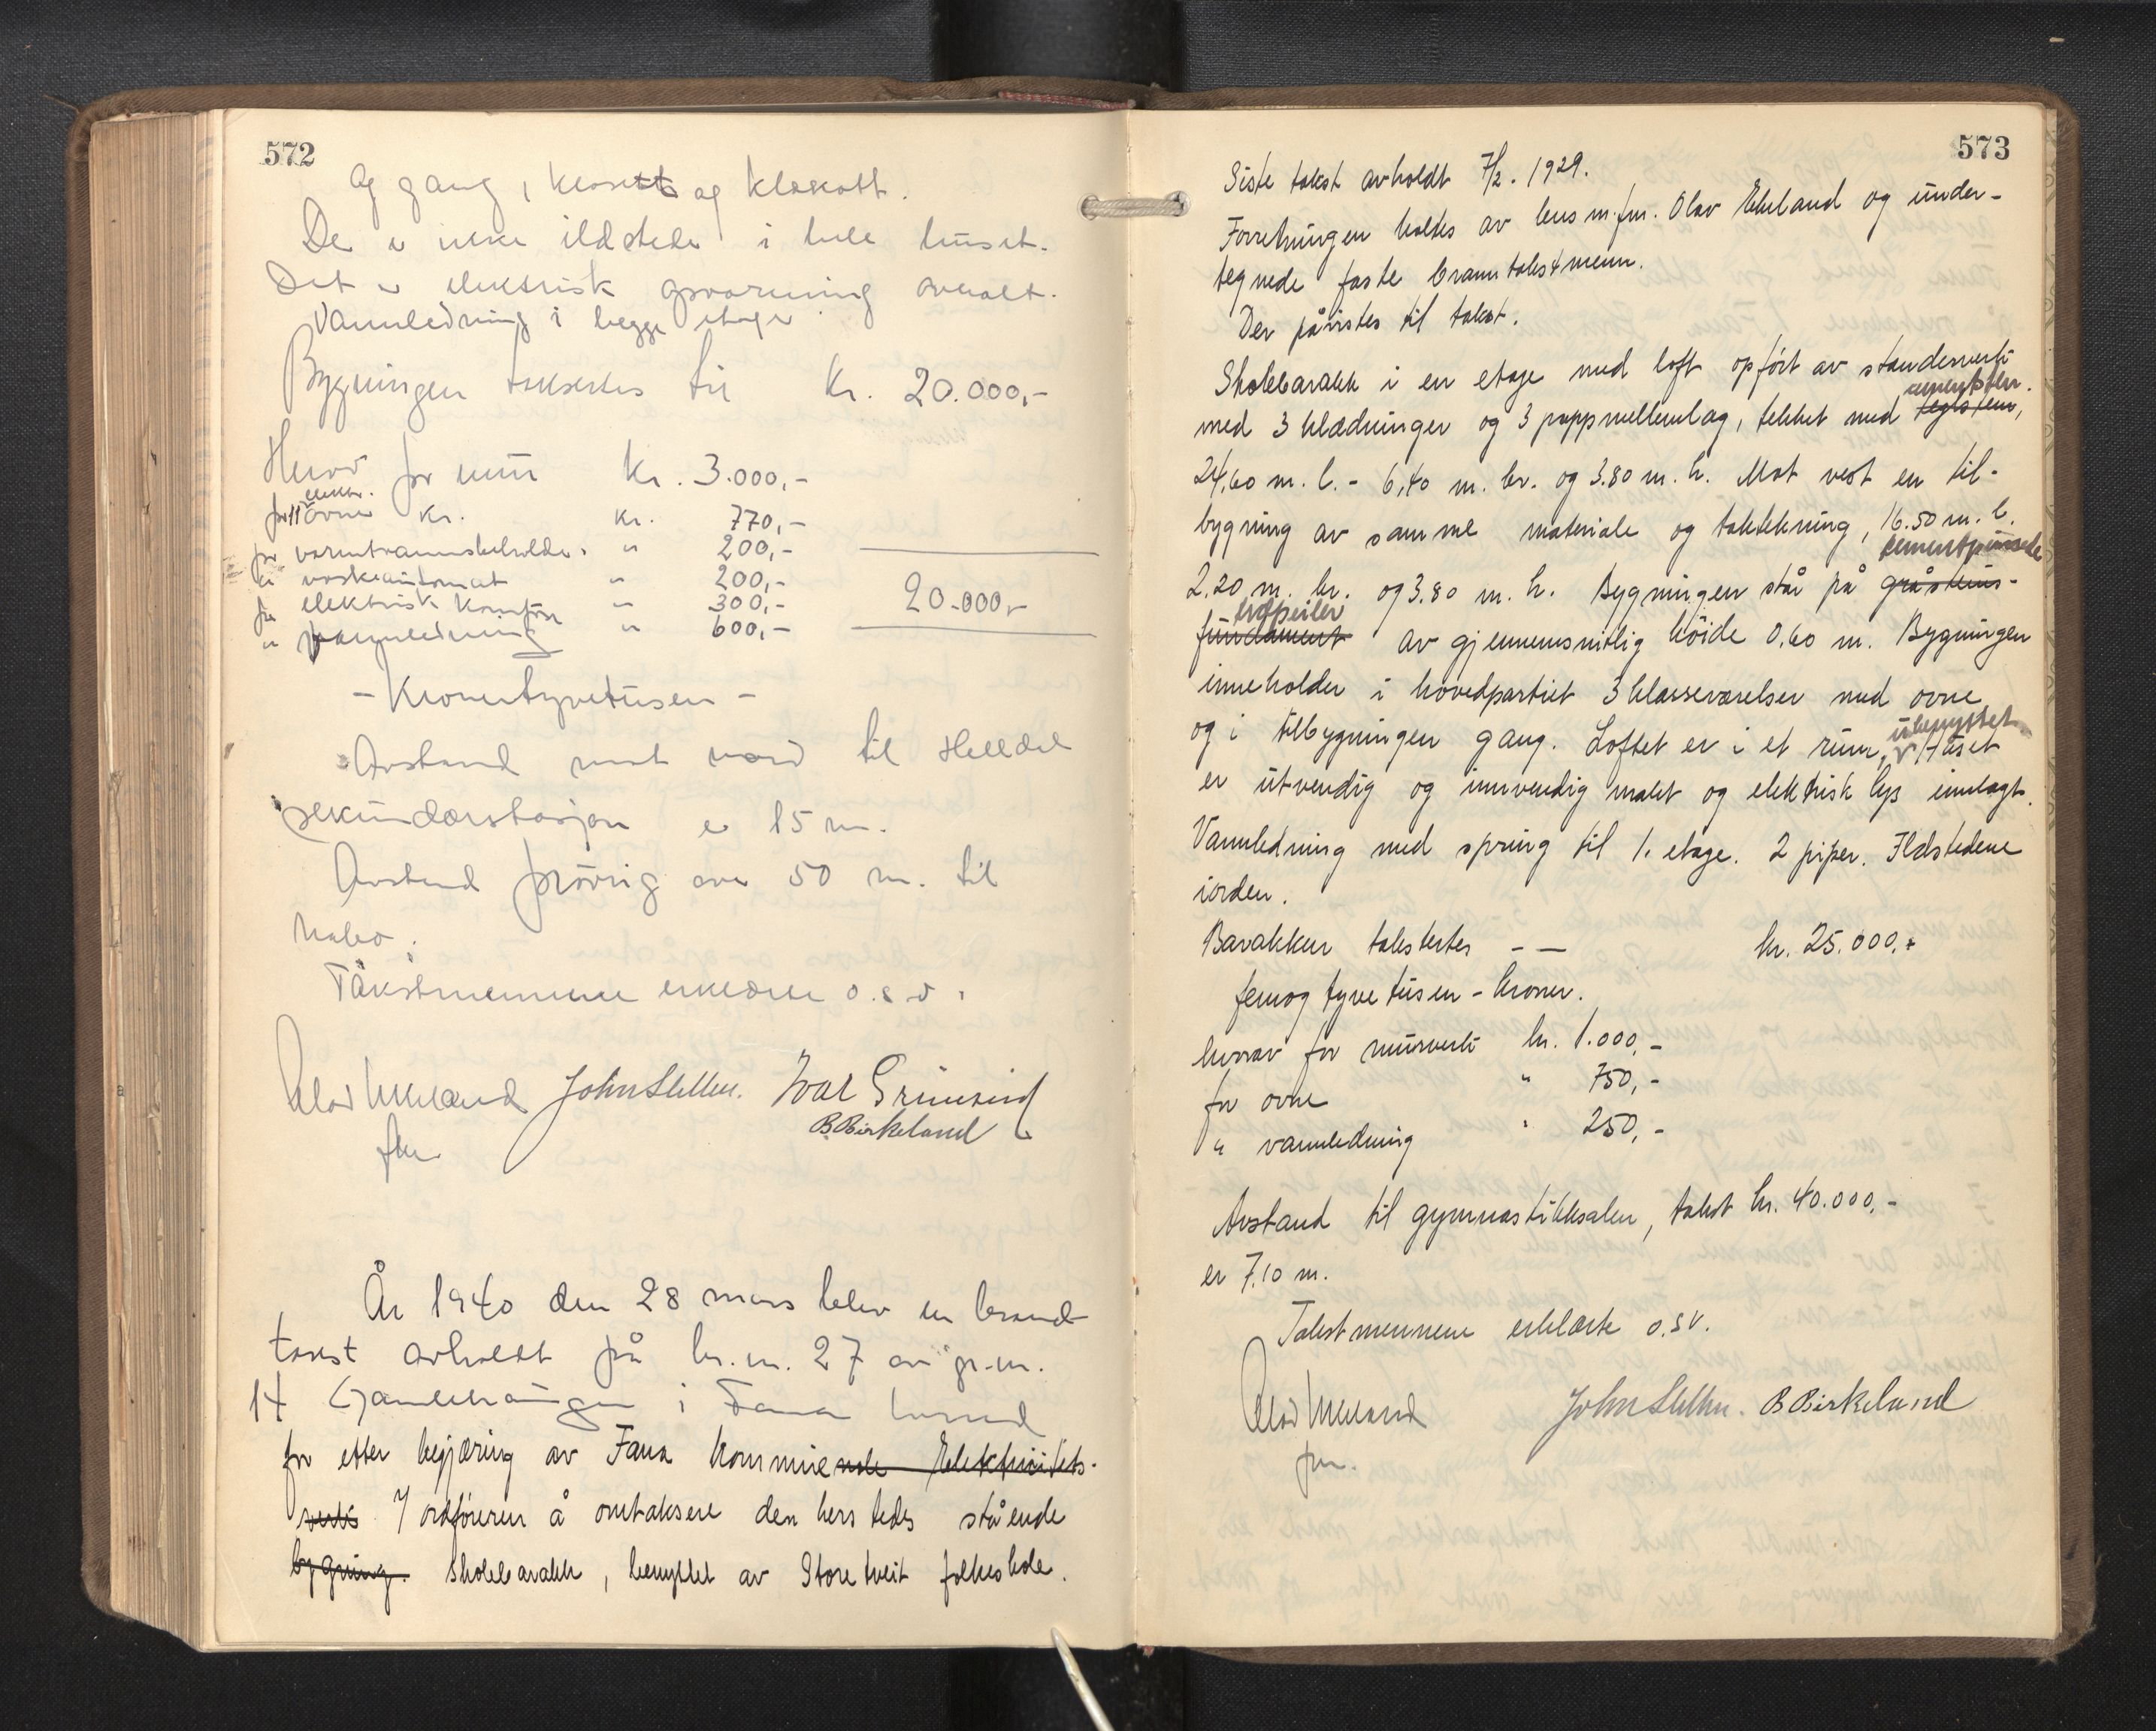 572
og gang, klosett og kleskott.
De er ikke ildsteder i hele huset.
Det er elektrisk opvarming overalt.
Vannledning i begge etager.
Bygningen takseres til kr. 20.000,-
Herav for mur kr. 3.000,-
for 11 elektr. ovner kr. kr. 770,-
for varmtvannsbeholder " 200,-
" vaskeautomat " 200,-
for elektrisk komfyr " 300,- 20.000,-
" vannledning " 600,-
- Kronertyvetusen -
Avstand mot nord til Helldal
sekundærstasjon er 15 m.
Avstand forøvrig over 50 m. til
nabo.
Takstmennene erklærte o.s.v.
Olav Ekeland John Sletten. Ivar Grimseid
fm B Birkeland
År 1940 den 28 mars blev en brand-
takst avholdt på br.nr. 27 av gr.nr.
14 i Fana herred
for etter begjæring av Fana kommune nale Elektrisitets-
verk v/ ordføreren å omtaksere den hersteds stående
bygning. skolebarakk, benyttet av Storetveit folkeskole.
573
Siste takst avholdt 7/2. 1929.
Forretningen holdtes av lensm.fm. Olav Ekeland og under-
tegnede faste branntakstmenn.
Der påvistes til takst.
Skolebarakk i en etage med loft opført av stenderverk
med 3 klædninger og 3 pappmellemlag, tekket med teglsten, sementsten.
24,60 m. l. - 6,40 m. br. og 3.80 m. h. Mot vest en til-
bygning av samme materiale og taktekning, 16.50 m. l.
2,20 m. br. og 3,80 m. h. Bygningen står på gråstens- sementpussede
fundament trepeiler av gjennemsnitlig høide 0,60 m. Bygningen
inneholder i hovedpartiet 3 klasseværelser med ovne
og i tilbygningen gang. Loftet er i et rum, ubenyttet. Huset
er utvendig og innvendig malt og elektrisk lys innlagt.
Vannledning med spring til 1. etage. 2 piper. Ildstedene
iorden.
Barakken taksertes - — kr. 25.000,-
femogtyvetusen - kroner.
hvorav for murverk kr. 1.000,-
for ovne " 750,-
" vannledning " 250,-
Avstand til gymnastikksalen, takst kr. 40.000,-
er 7,10 m.
Takstmennene erklærte o.s.v.
Olav Ekeland John Sletten. B Birkeland
fm.